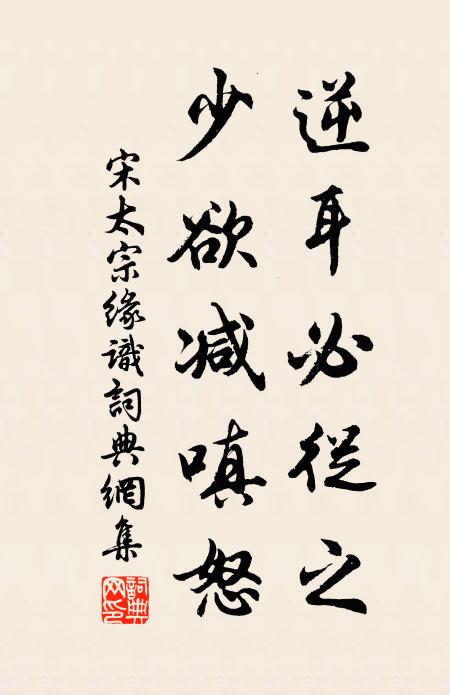 逆耳必從之
少欲减嗔怒
宋太宗緣識詞典網集
詞典網印